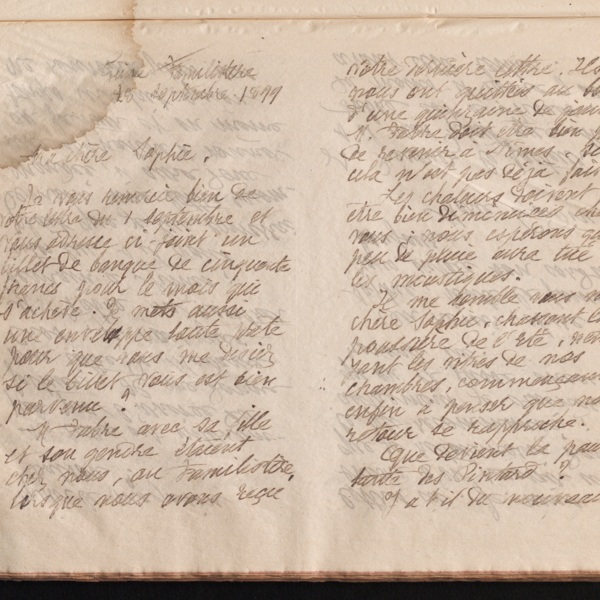 Familistère
septembre 1899
chère Sophie,
Je vous remercie bien de
votre lettre du 1 septembre et
vous adresse ci-joint un
billet de banque de cinquante
francs pour le mois qui
s'achève. Je mets aussi
une enveloppe toute prête
pour que vous me disiez
si le billet vous est bien
parvenu ?
Mr Fabre avec sa fille
et son gendre étaient
chez nous, au Familistère,
lorsque nous avons reçu
votre dernière lettre. Ils
nous ont quittés au bo
d'une quinzaine de jours
Mr Fabre doit être bien
de revenir à Nîmes, si
cela n'est pas déjà fait
Les chaleurs doivent
être bien diminuées che
vous ; nous espérons qu
peu de pluie aura tué
les moustiques.
Je me
chère Sophie, chassent la
poussière de l'été,
les vitres de nos
chambres, commencent
enfin à penser que no
retour se rapproche.
Que devient la pau
tante des Pintard ?
Y a t'il du nouveau